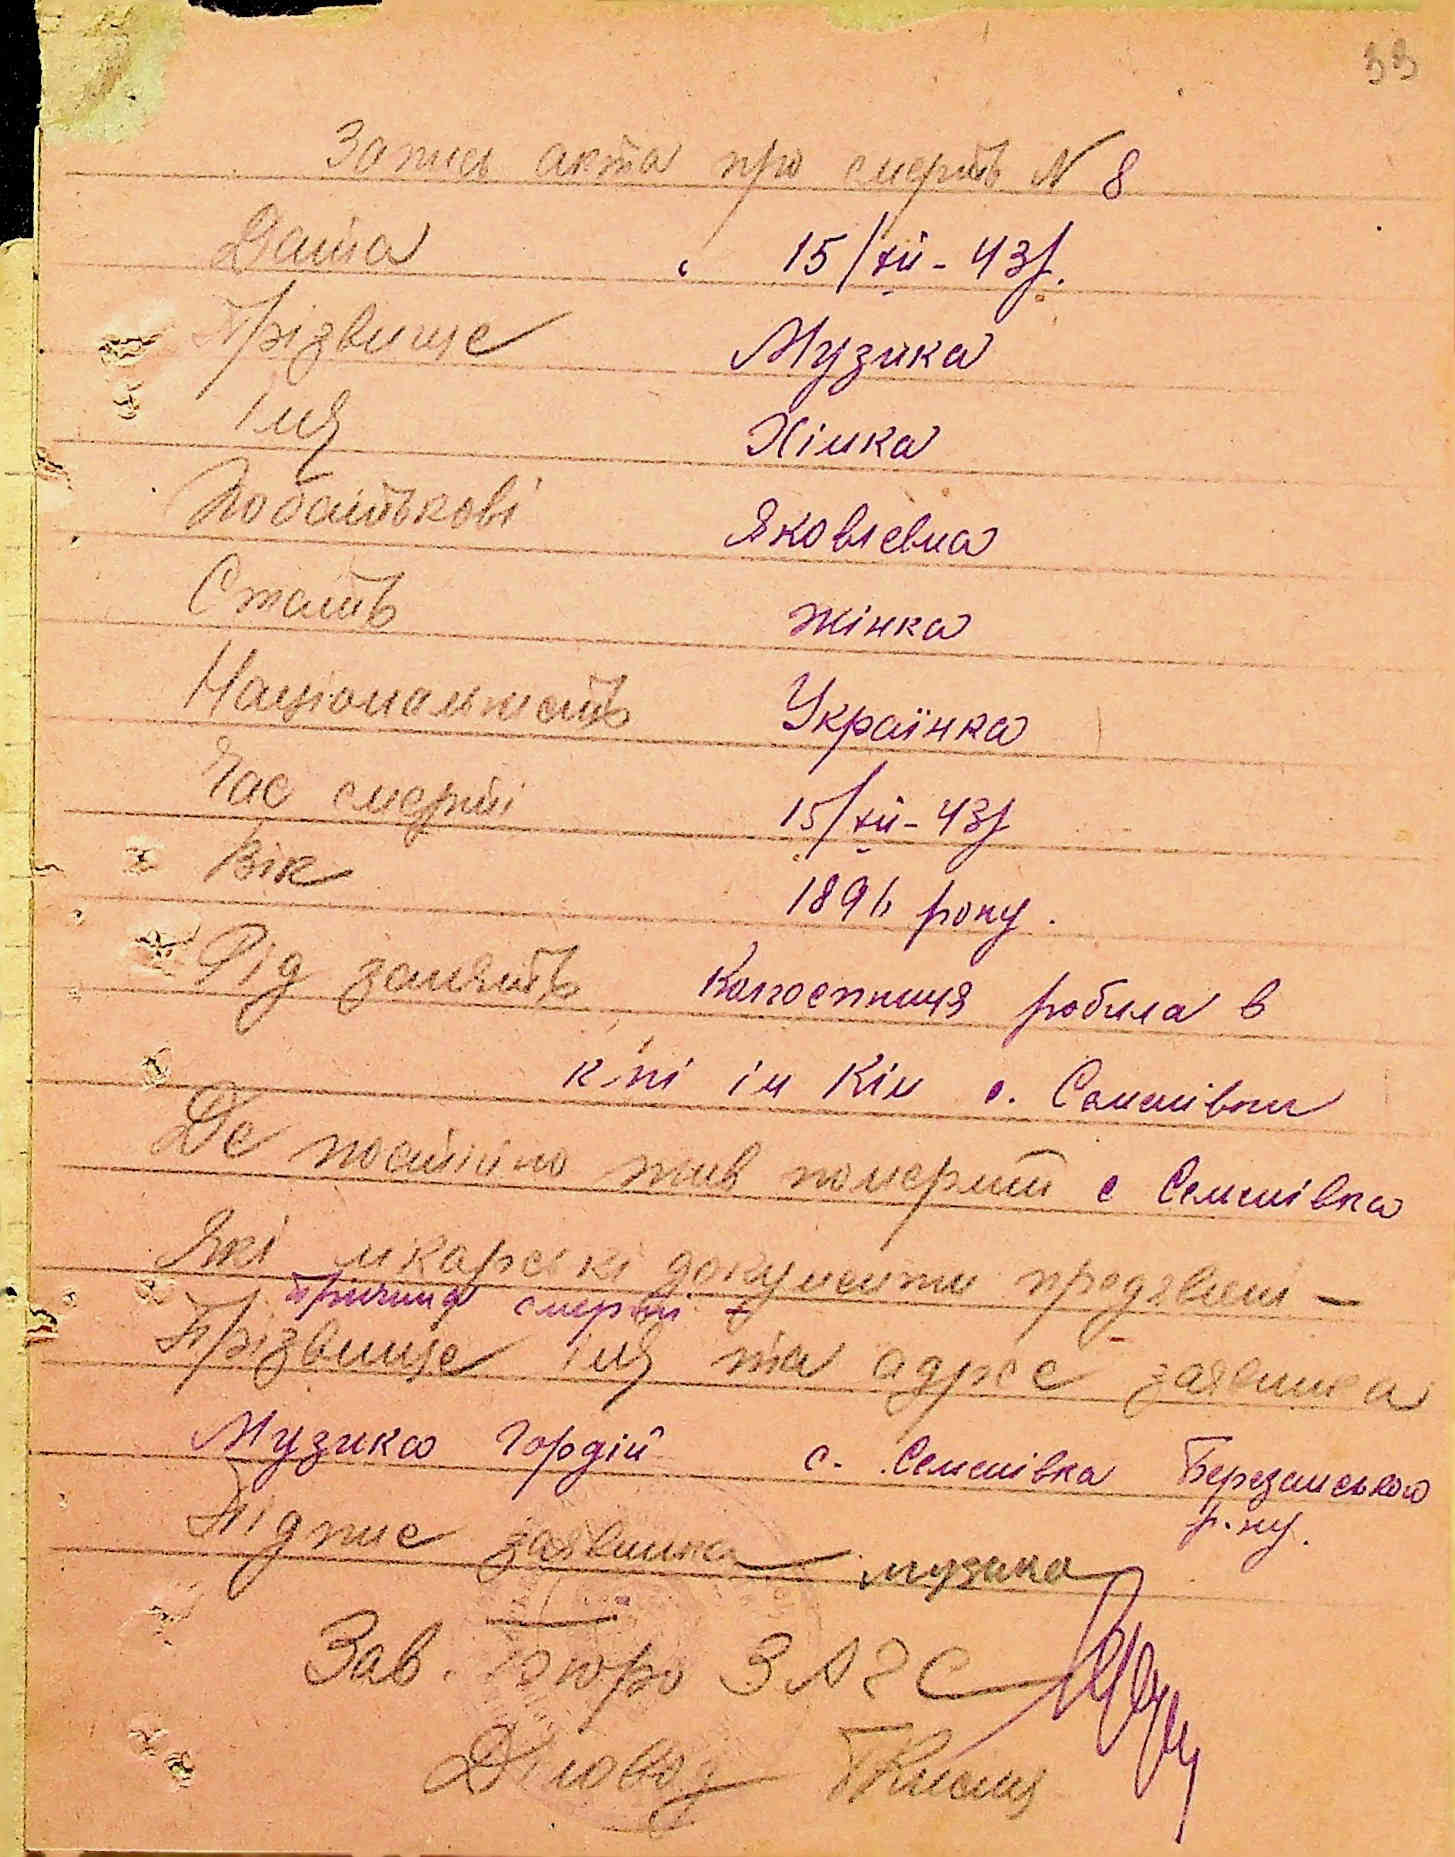 33
Запись акта про смерть N 8
Дата 15/XII - 43 р.
Прізвище Музика
Імя Хімка
Побатькові Яковлевна
Стать жінка
Національність Українка
Час смерті 15/XII - 43 р
Вік 1896 року.
Рід занять Колгоспниця робила в
к-пі ім Кім с. Семенівки
Де постійно жив померший с Семенівка
Які лікарські документи предявлені -
Причина смерті -
Прізвище імя та адрес заявника
Музика Гордій с. Семенівка Березанського
р-ну.
Підпис заявника музика
Зав. Бюро ЗАГС
Діловод